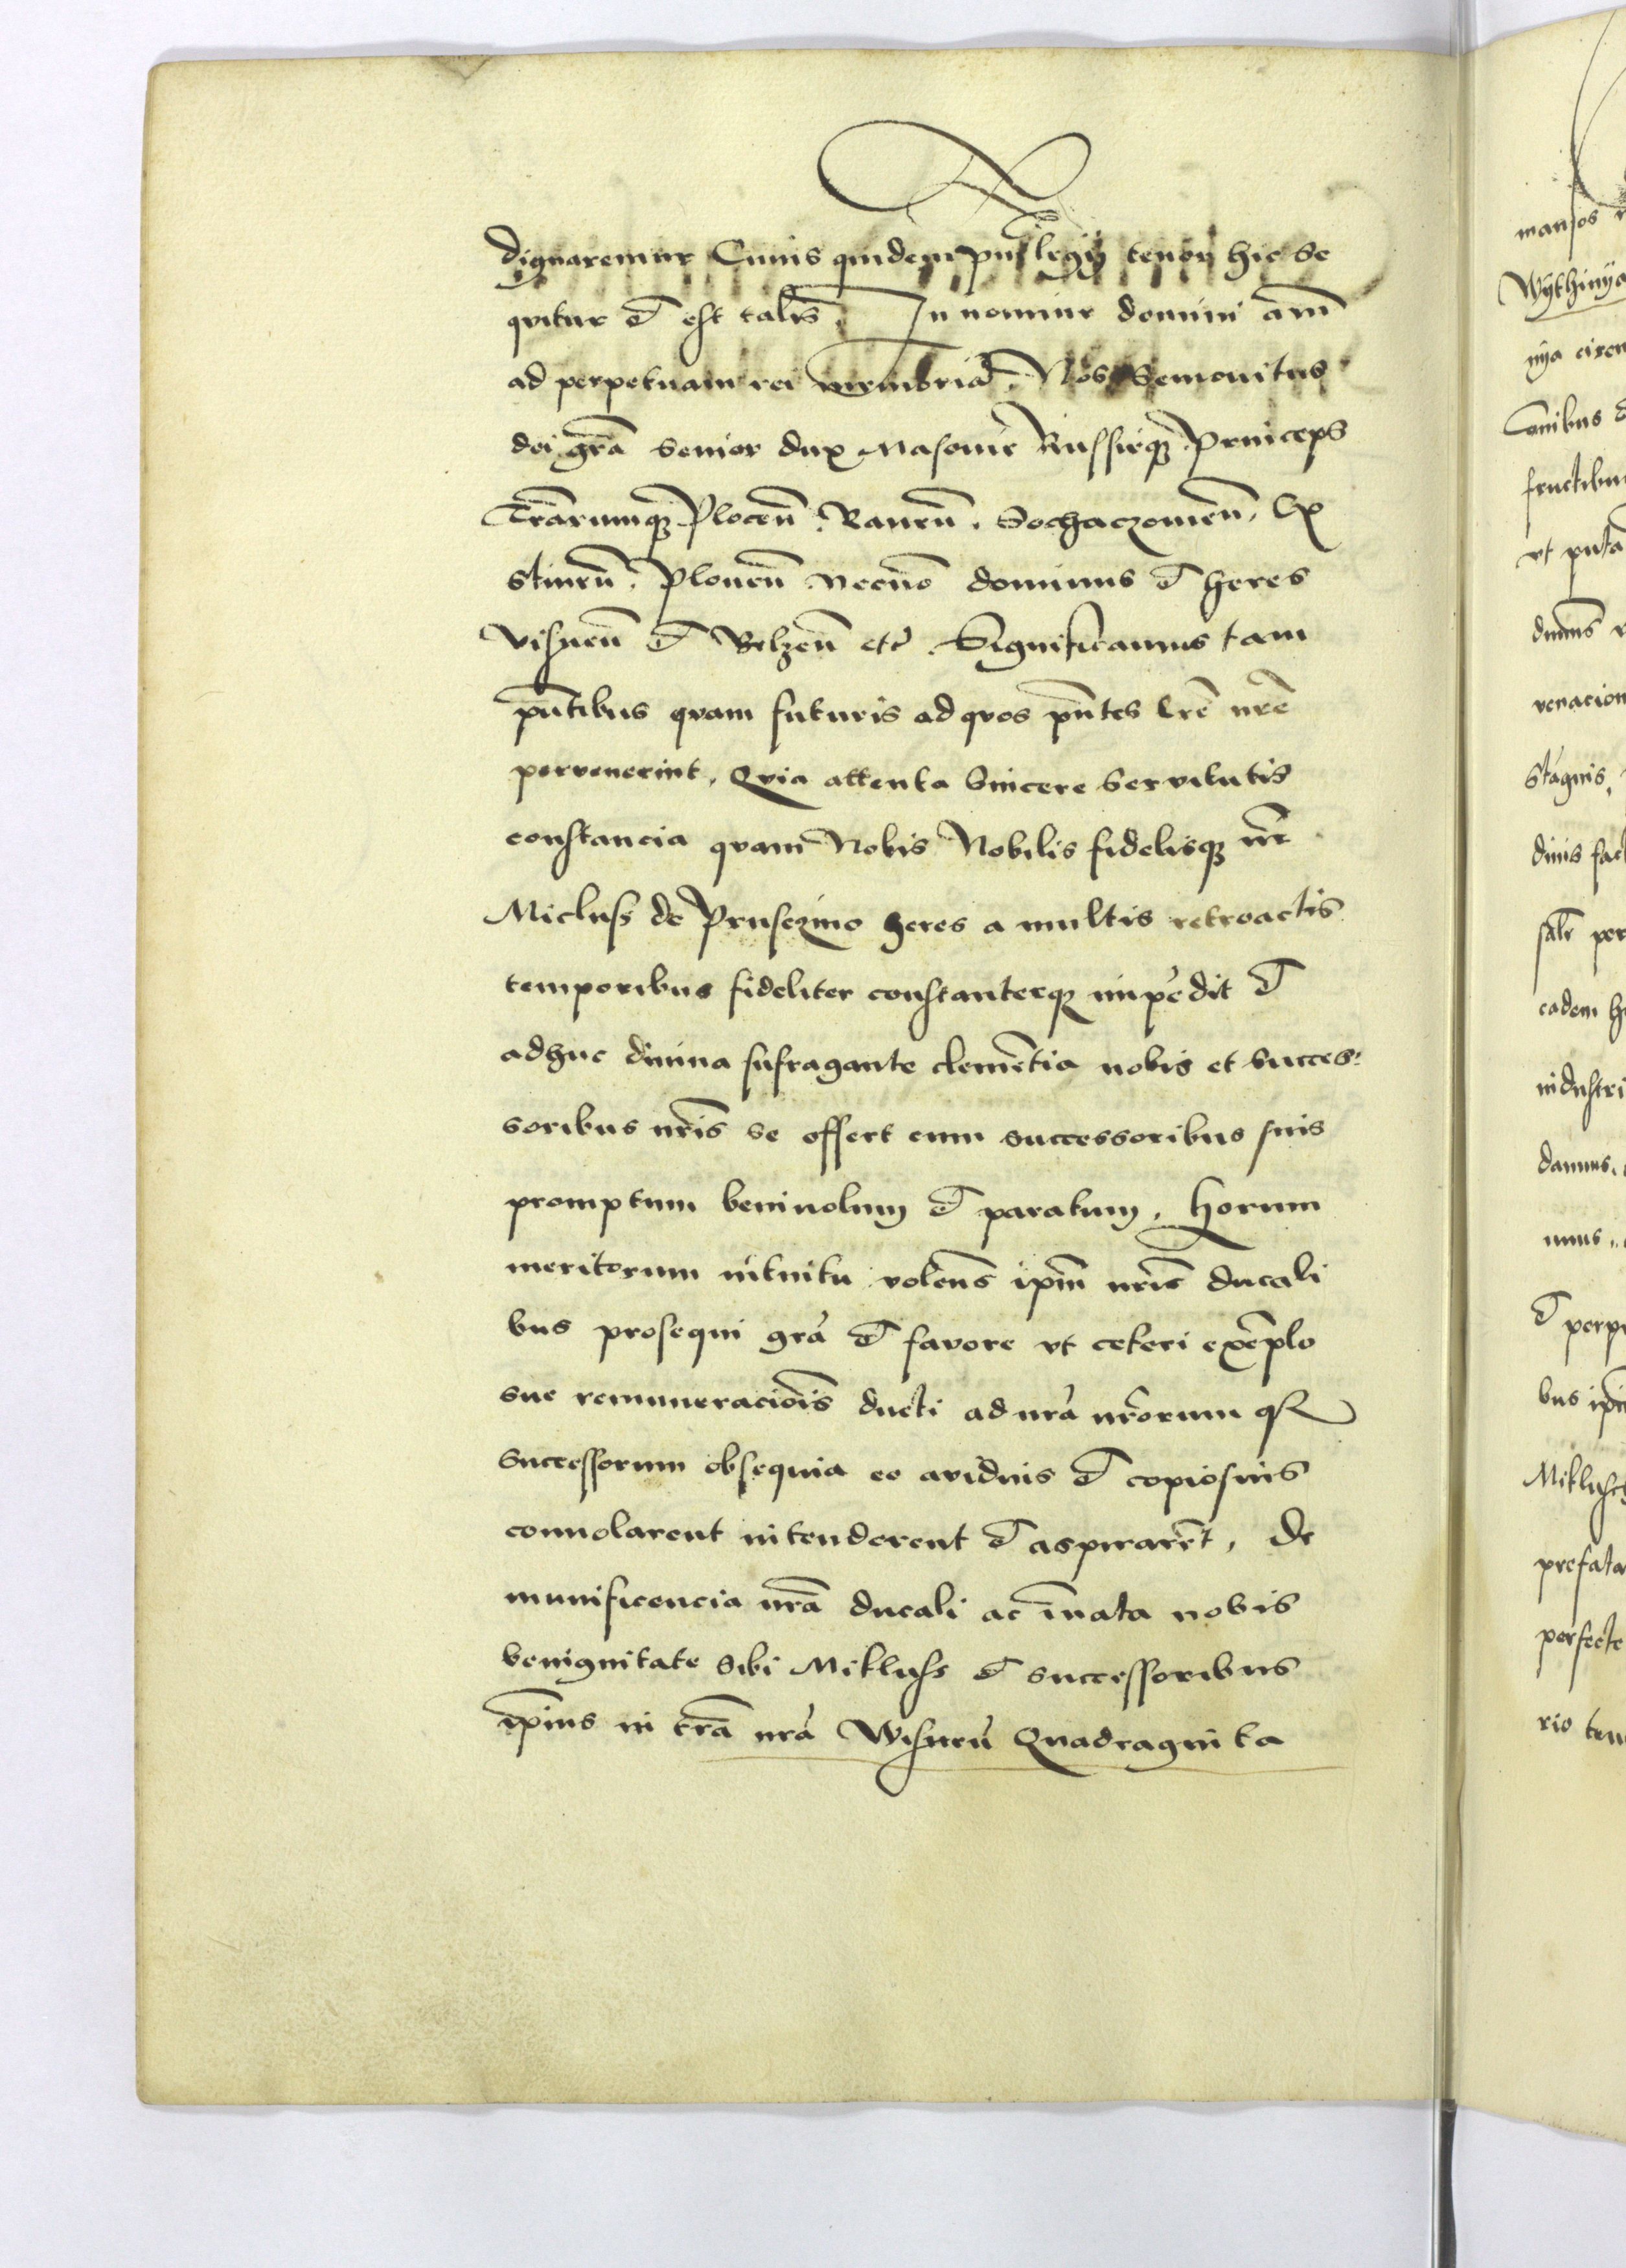 dignaremur Cuius quidem privilegij tenor hic se
quitur et est talis. In nomine domini amē
ad perpetuam rei memoriā. Nos Semouitus
dei grā senior dux Masouie Russieque Princeps
Trārumque Plocen̄. Rauen̄. Sochaczouien̄.
stinen̄. Plouen̄ Necno dominus et heres
visnen̄ et Belzen̄ etc. Significamus tam
pn̄tibus quam futuris ad quos pn̄tes lrē nrē
pervenerint. Quia attenta sincere servitutis
constancia quam Nobis Nobilis fidelisque nr̄
Micluss de Prusczino heres a multis retroactis
temporibus fideliter constanterque impēdit et
adhuc diuina sufragante clemētia nobis et succes
soribus nrīs se offert cum successoribus suis
promptum beniuolum et paratum. Horum
meritorum intuitu volens ipm̄ nrīs ducali
bus prosequi grā et favore vt ceteri exēplo
sue remuneraciōis ducti ad nrā nrōrum qz
successorum obsequia eo avidius et copiosius
conuolarent intenderent et aspirarēt. De
munificencia nrā ducali ac īnata nobis
benignitate sibi Mikluss et successoribus
ip̄ius in trā nrā Wisnen̄ Quadraginta
mansos
Wythinya
nya
fructibu
vt puta
venacion
stagnis
dinis fac
per
eadem
industri
damus
mus
et perp
bus
prefata
perfecte
rio